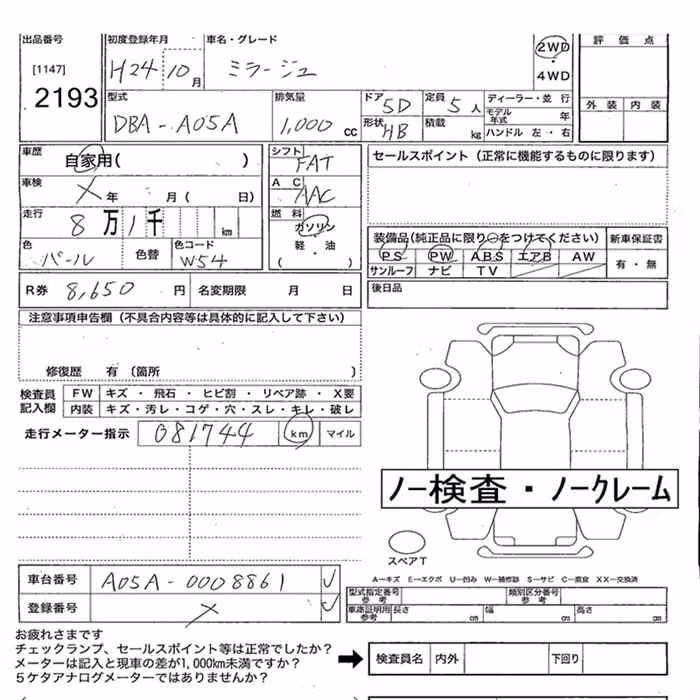 出品番号 初度登録年月 車名・グレード 2WD 評価点
[1147] H24 10月 ミラージュ ・
2193 4WD
型式 排気量 ドア 5D 定員 5人 ディーラー・並行 外装 内装
DBA-A05A 1,000cc 形状 HB 積載 kg モデル年式 年
ハンドル 左・右
車歴 自家用( ) シフト FAT セールスポイント(正常に機能するものに限ります)
車検 X年 月( 日) AC AAC
走行 8万1千 km 燃料 ガソリン・軽・油 装備品(純正品に限り○をつけてください) 新車保証書
色 パール 色替 色コード W54 PS PW ABS エアB AW 有・無
サンルーフ ナビ TV
R券 8,650円 名変期限 月 日 後日品
注意事項申告欄(不具合内容等は具体的に記入して下さい)
修復歴 有(箇所 )
検査員記入欄 FW キズ・飛石・ヒビ割・リペア跡・X要
内装 キズ・汚レ・コゲ・穴・スレ・キレ・破レ
走行メーター指示 081744 km マイル
ノー検査・ノークレーム
スペアT
車台番号 A05A-0008861 ✓
A-キズ E-エクボ U-凹み W-補修跡 S-サビ C-腐食 XX-交換済
登録番号 X ✓ 型式指定番号 参考 類別区分番号 参考
車庫証明用 参考 長さ cm 幅 cm 高さ cm
お疲れさまです
チェックランプ、セールスポイント等は正常でしたか?
メーターは記入と現車の差が1,000km未満ですか? ➡ 検査員名 内外 下回り
5ケタアナログメーターではありませんか?